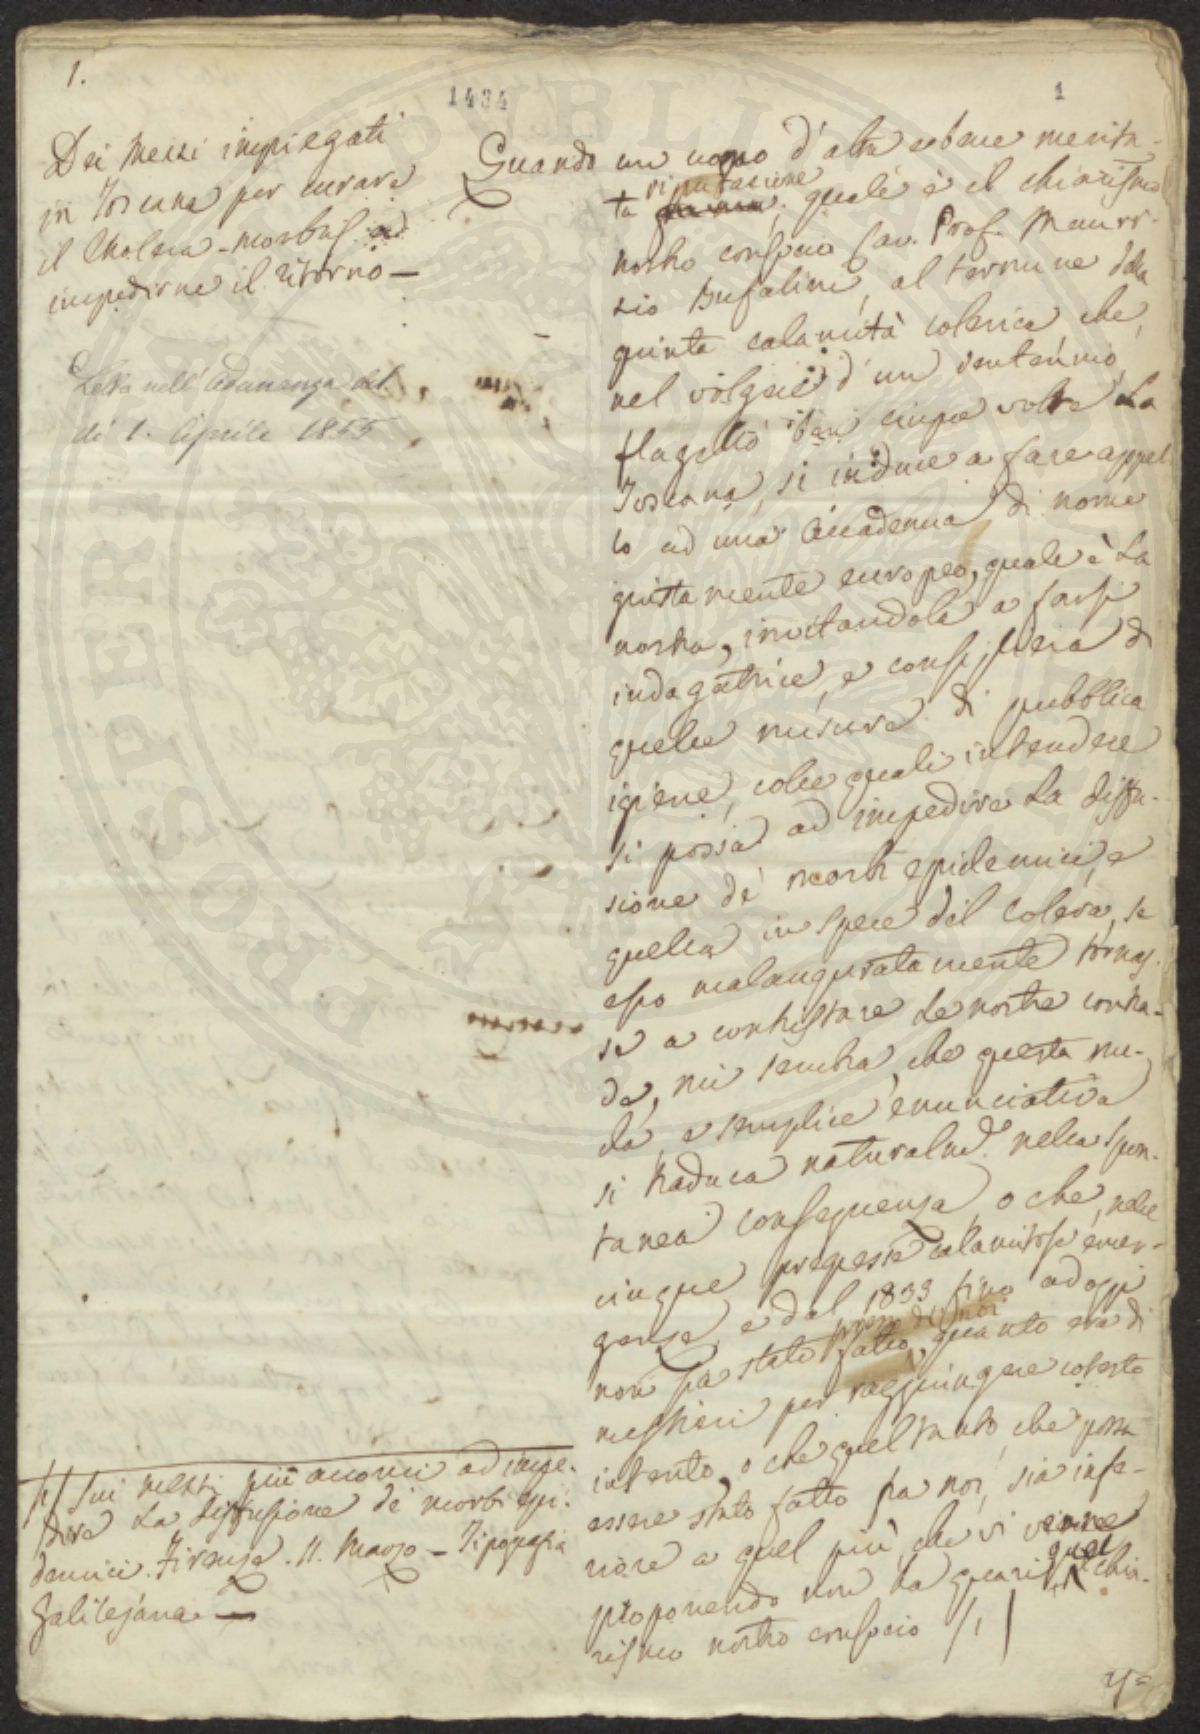 1.
1484
1
Dei Mezzi impiegati
in Toscana per curare
il Cholera-morbus ad
impedirne il ritorno —
Letta nell' Adunanza del
dì 1. Aprile 1855
Quando un uomo d'alta e bene merita-
ta riputazione, quale è il chiarissmo
nostro consocio Cav. Prof. Mauri-
zio Bufalini, al termine della
quinta calamità colerica che,
nel volgere d'un ventennio,
flagellò ben cinque volte la
Toscana, si induce a fare appel-
lo ad una Accademia di nome
giustamente europeo, quale è la
nostra, invitandola a farsi
indagatrice, e consigliera di
quelle misure di pubblica
igiene, colle quali intendere
si possa ad impedire la diffu-
sione de' morbi epidemici, e
quella in specie del colera, se
esso malauguratamente tornas-
se a contristare le nostre contra-
de, mi sembra, che questa nu-
da, e semplice enunciativa
si traduca naturalmte. nella spon-
tanea conseguenza, o che, nelle
cinque pregresse calamitose emer-
genze, e dal 1833 fino ad oggi
non sia stato fatto presso di noi, quanto era di
mestieri per raggiungere cotesto
intento, o che quel tanto, che possa
essere stato fatto fra noi, sia infe-
riore a quel più, che vi venne
proponendo non ha guari quel chia-
rismo nostro consocio /1/
/1/ Sui mezzi più acconci ad impe-
dire la diffusione de' morbi epi-
demici. Firenze. 11. Marzo — Tipografia
Galilejana. —
PROSPERITATI PUBLICAE